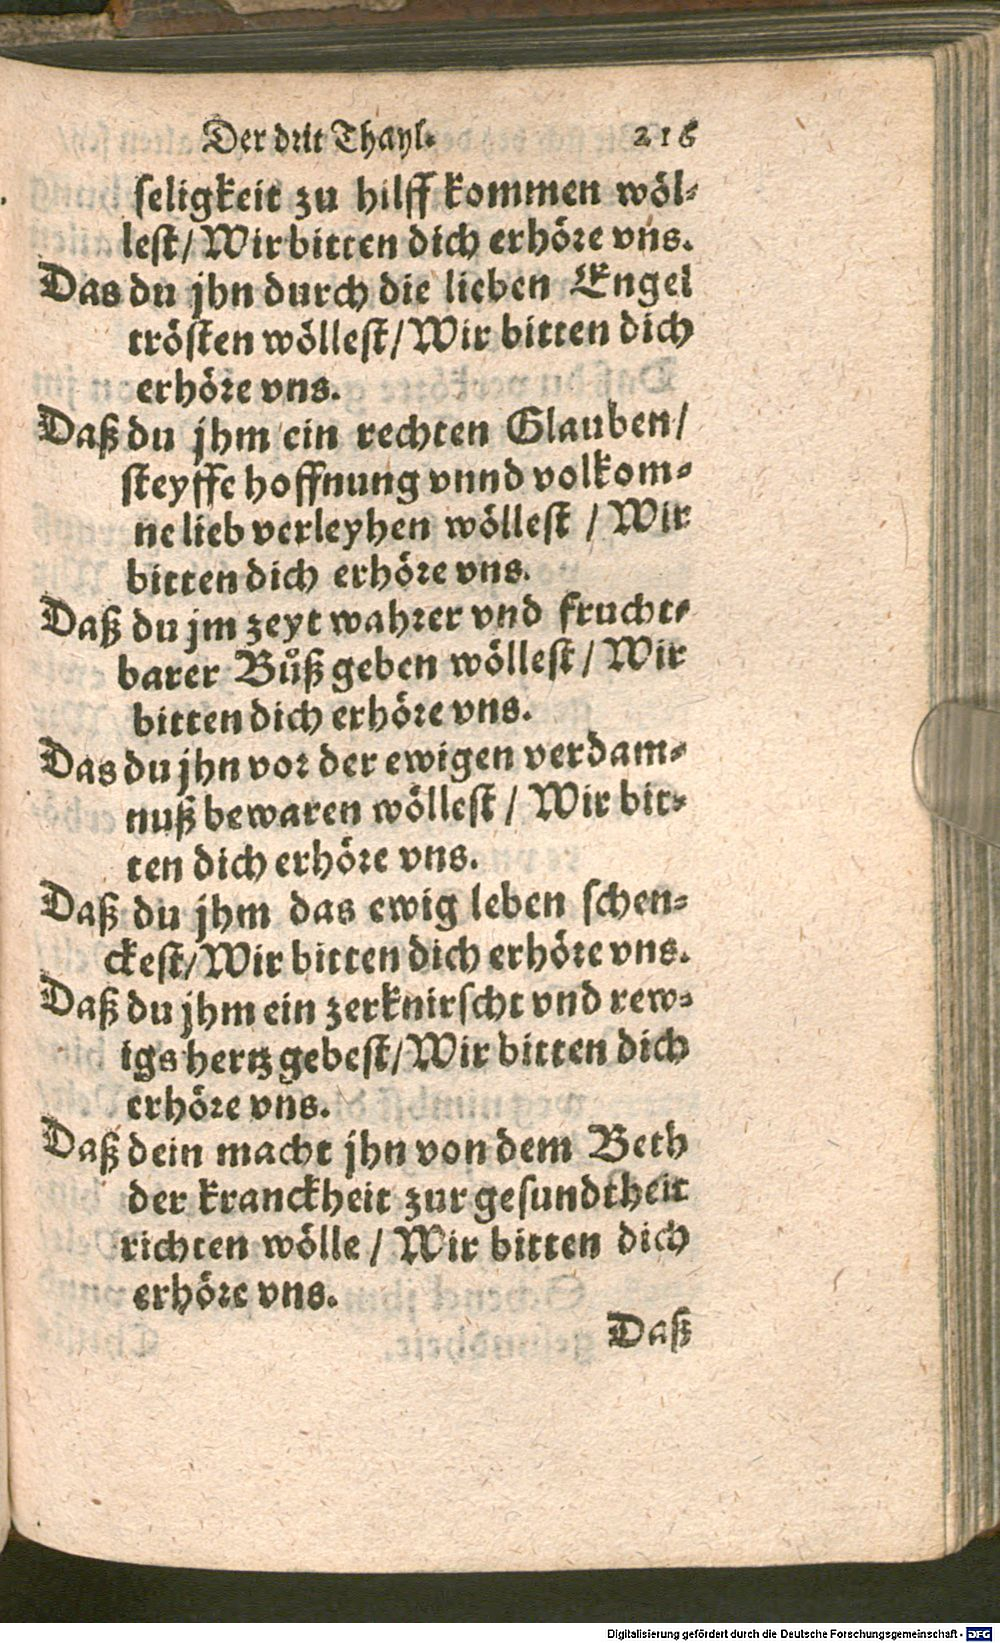 Der drit Thayl. 216
seligkeit zu hilff kommen wöl-
lest/ Wir bitten dich erhöre vns.
Das du jhn durch die lieben Engel
trösten wöllest/ Wir bitten dich
erhöre vns.
Daß du jhm ein rechten Glauben/
steyffe hoffnung vnnd volkom-
ne lieb verleyhen wöllest / Wir
bitten dich erhöre vns.
Daß du jm zeyt wahrer vnd frucht-
barer Bůß geben wöllest / Wir
bitten dich erhöre vns.
Das du jhn vor der ewigen verdam-
nuß bewaren wöllest / Wir bit-
ten dich erhöre vns.
Daß du jhm das ewig leben schen-
ckest/ Wir bitten dich erhöre vns.
Daß du jhm ein zerknirscht vnd rew-
igs hertz gebest/ Wir bitten dich
erhöre vns.
Daß dein macht jhn von dem Beth
der kranckheit zur gesundtheit
richten wölle / Wir bitten dich
erhöre vns.
Daß
Digitalisierung gefördert durch die Deutsche Forschungsgemeinschaft - DFG